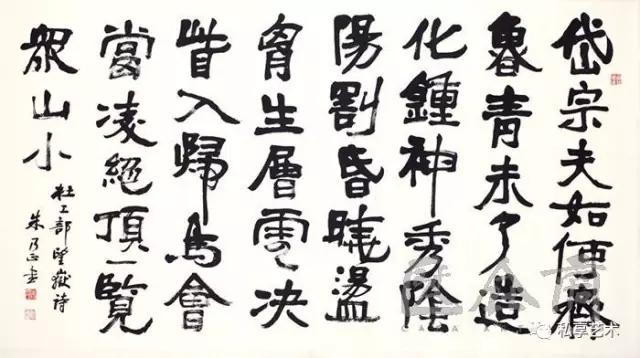 岱宗夫如何齊
魯青未了造
化鍾神秀陰
陽割昏曉盪
胷生層雲决
眥入歸鳥會
當凌絕頂一覽
眾山小
杜工部望嶽詩
朱乃正書
私享艺术